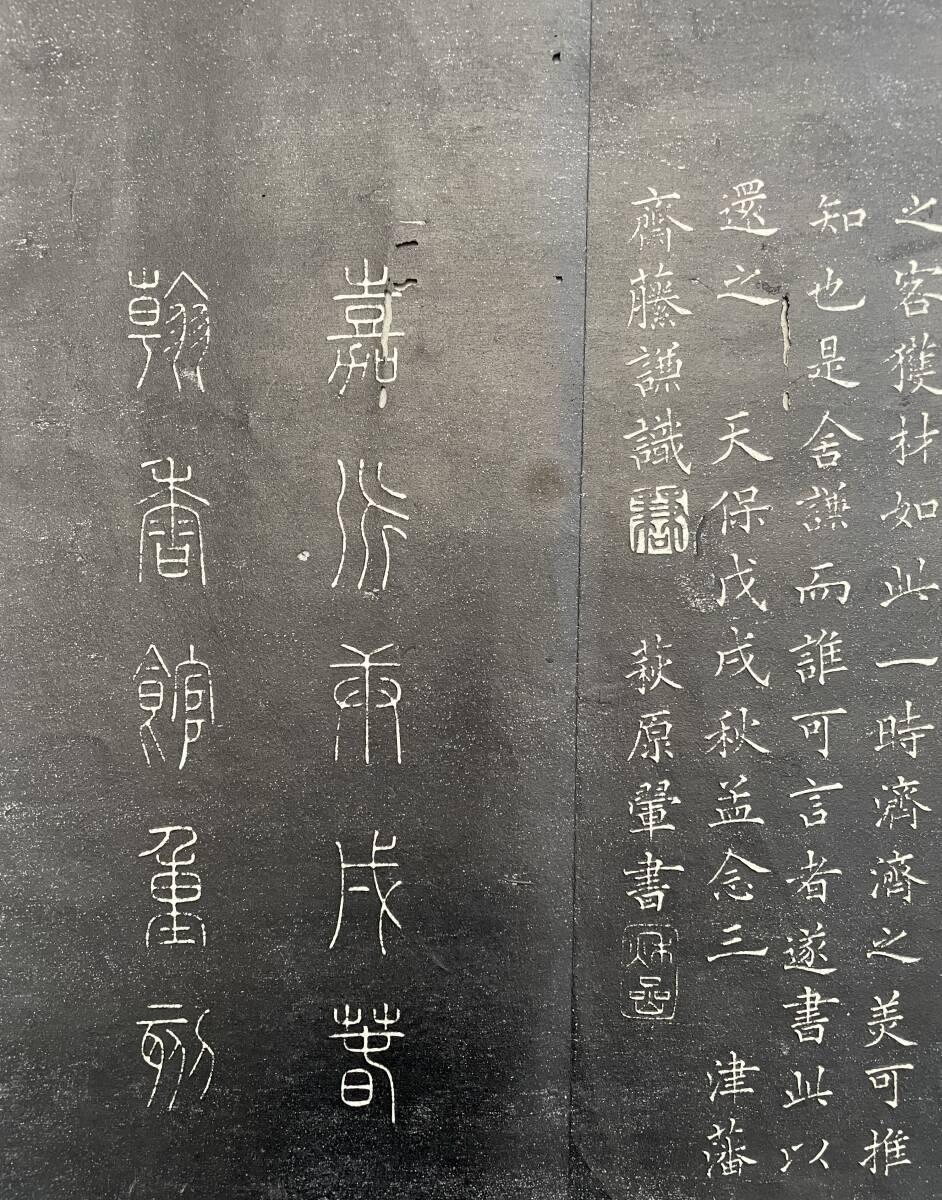 之客獲材如此一時濟濟之美可推
知也是舍謙而誰可言者遂書此以
還之 天保戊戌秋孟念三 津藩
齊藤謙識 萩原翬書
嘉永庚戌春
翰香館重刻